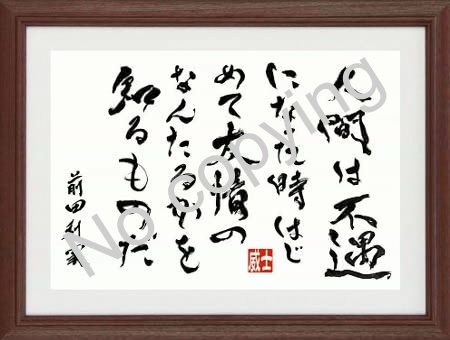 人間は不遇
になった時はじ
めて友情の
なんたるかを
知るものだ
前田利家
威士
No copying